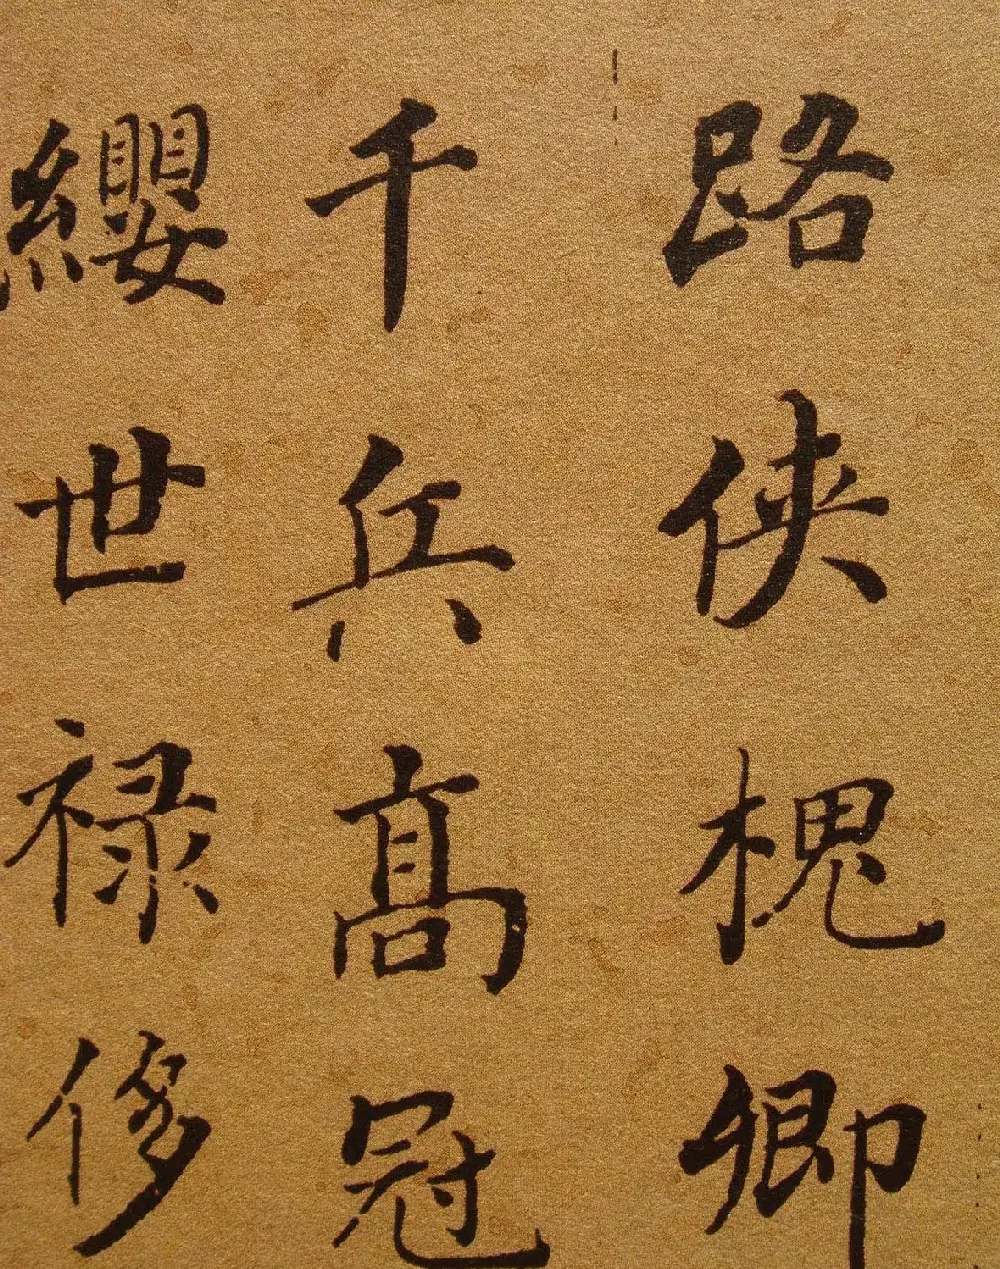 路侠槐卿
千兵高冠
纓世禄侈